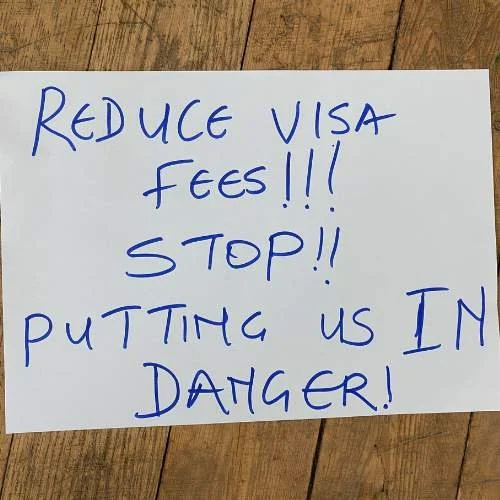 REDUCE VISA
FEES!!!
STOP!!
PUTTING US IN
DANGER!